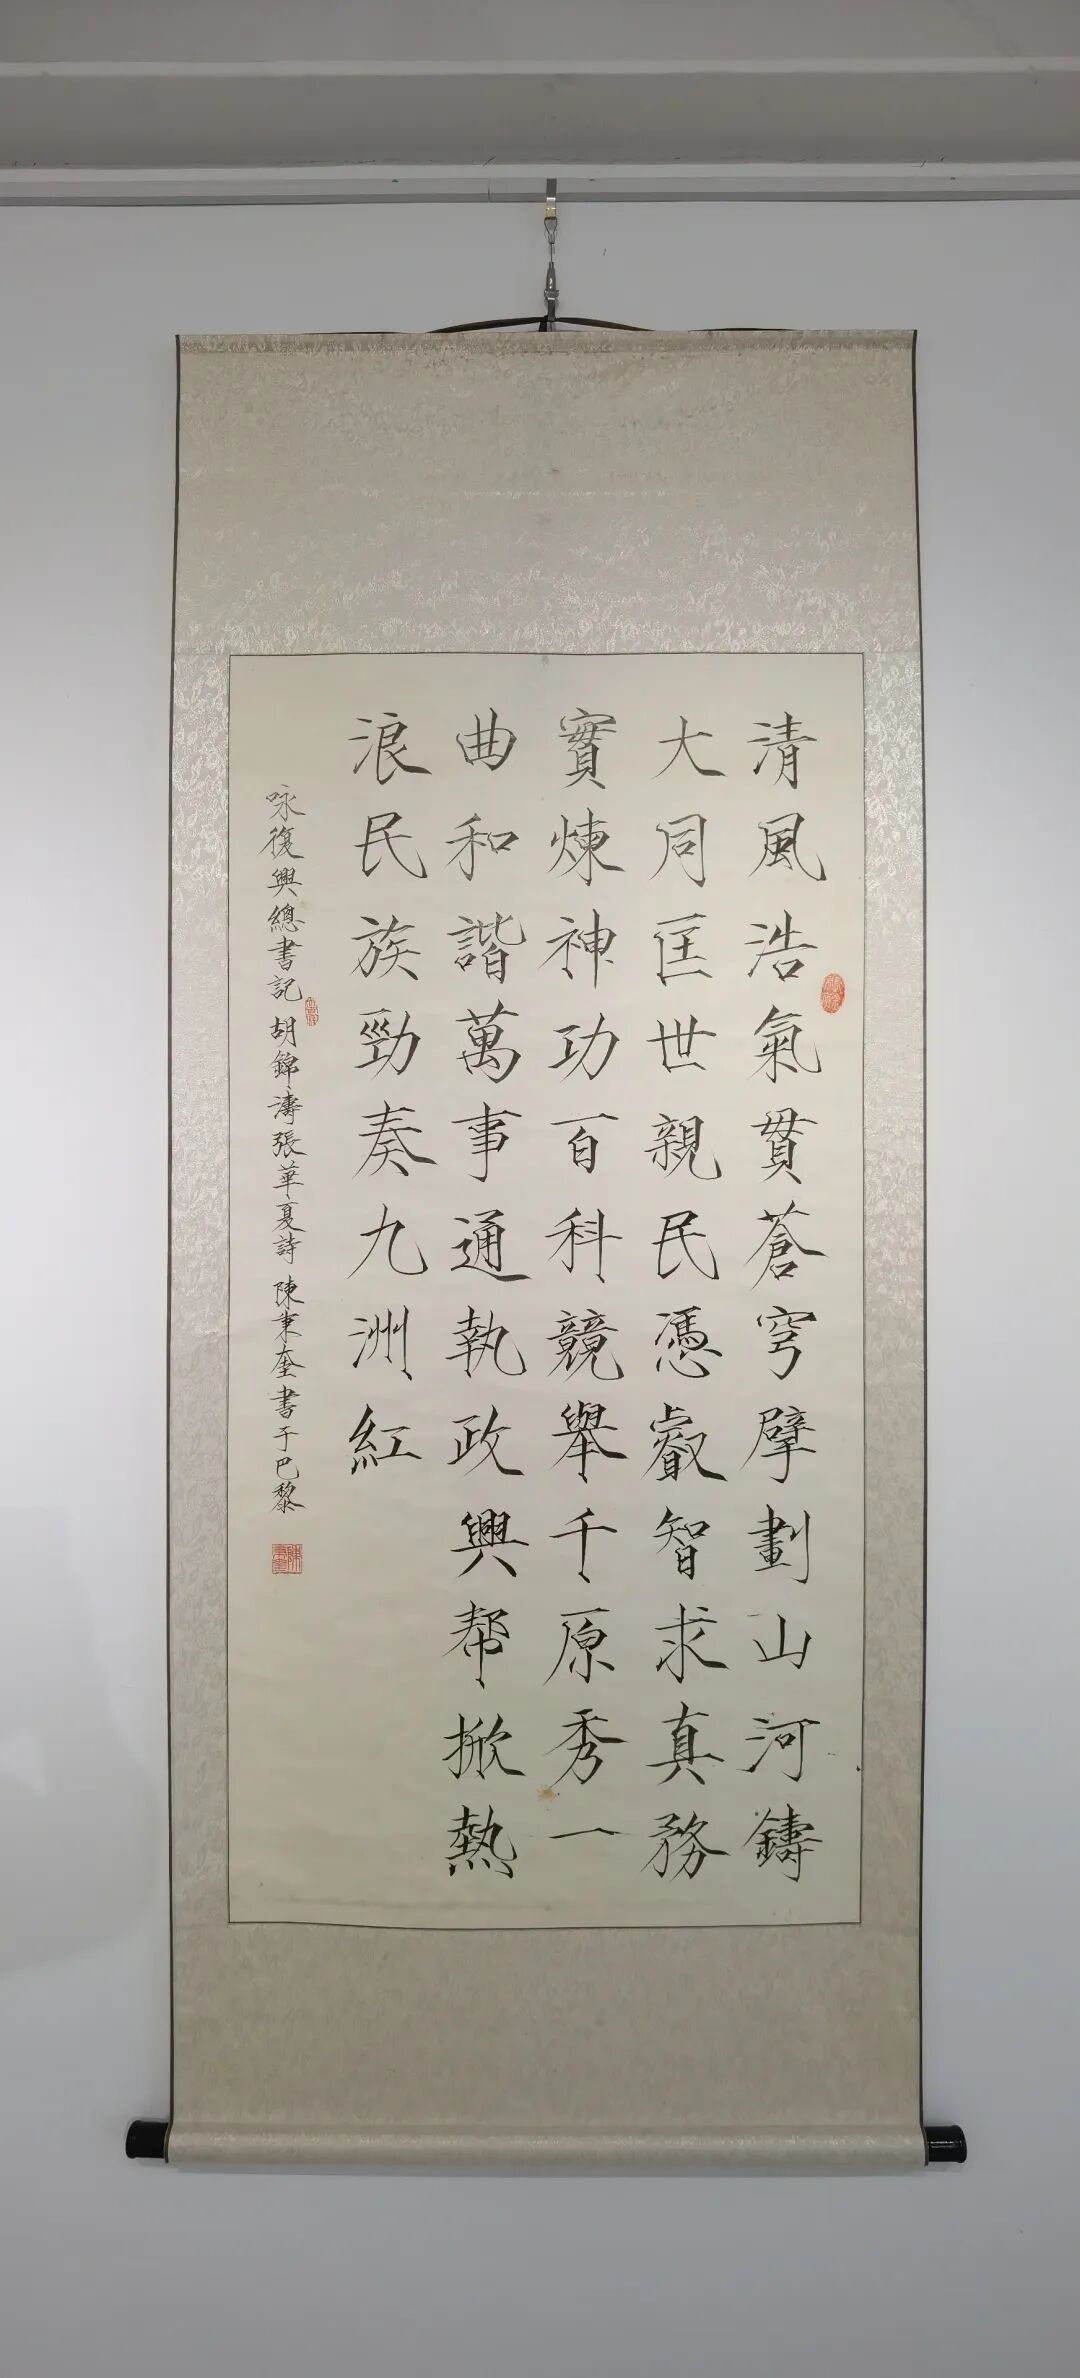 清風浩氣貫蒼穹擘劃山河鑄
大同匡世親民憑叡智求真務
實煉神功百科競舉千原秀一
曲和諧萬事通執政興帮掀熱
浪民族勁奏九洲紅
咏復興總書記胡錦濤張華夏詩陳秉奎書于巴黎